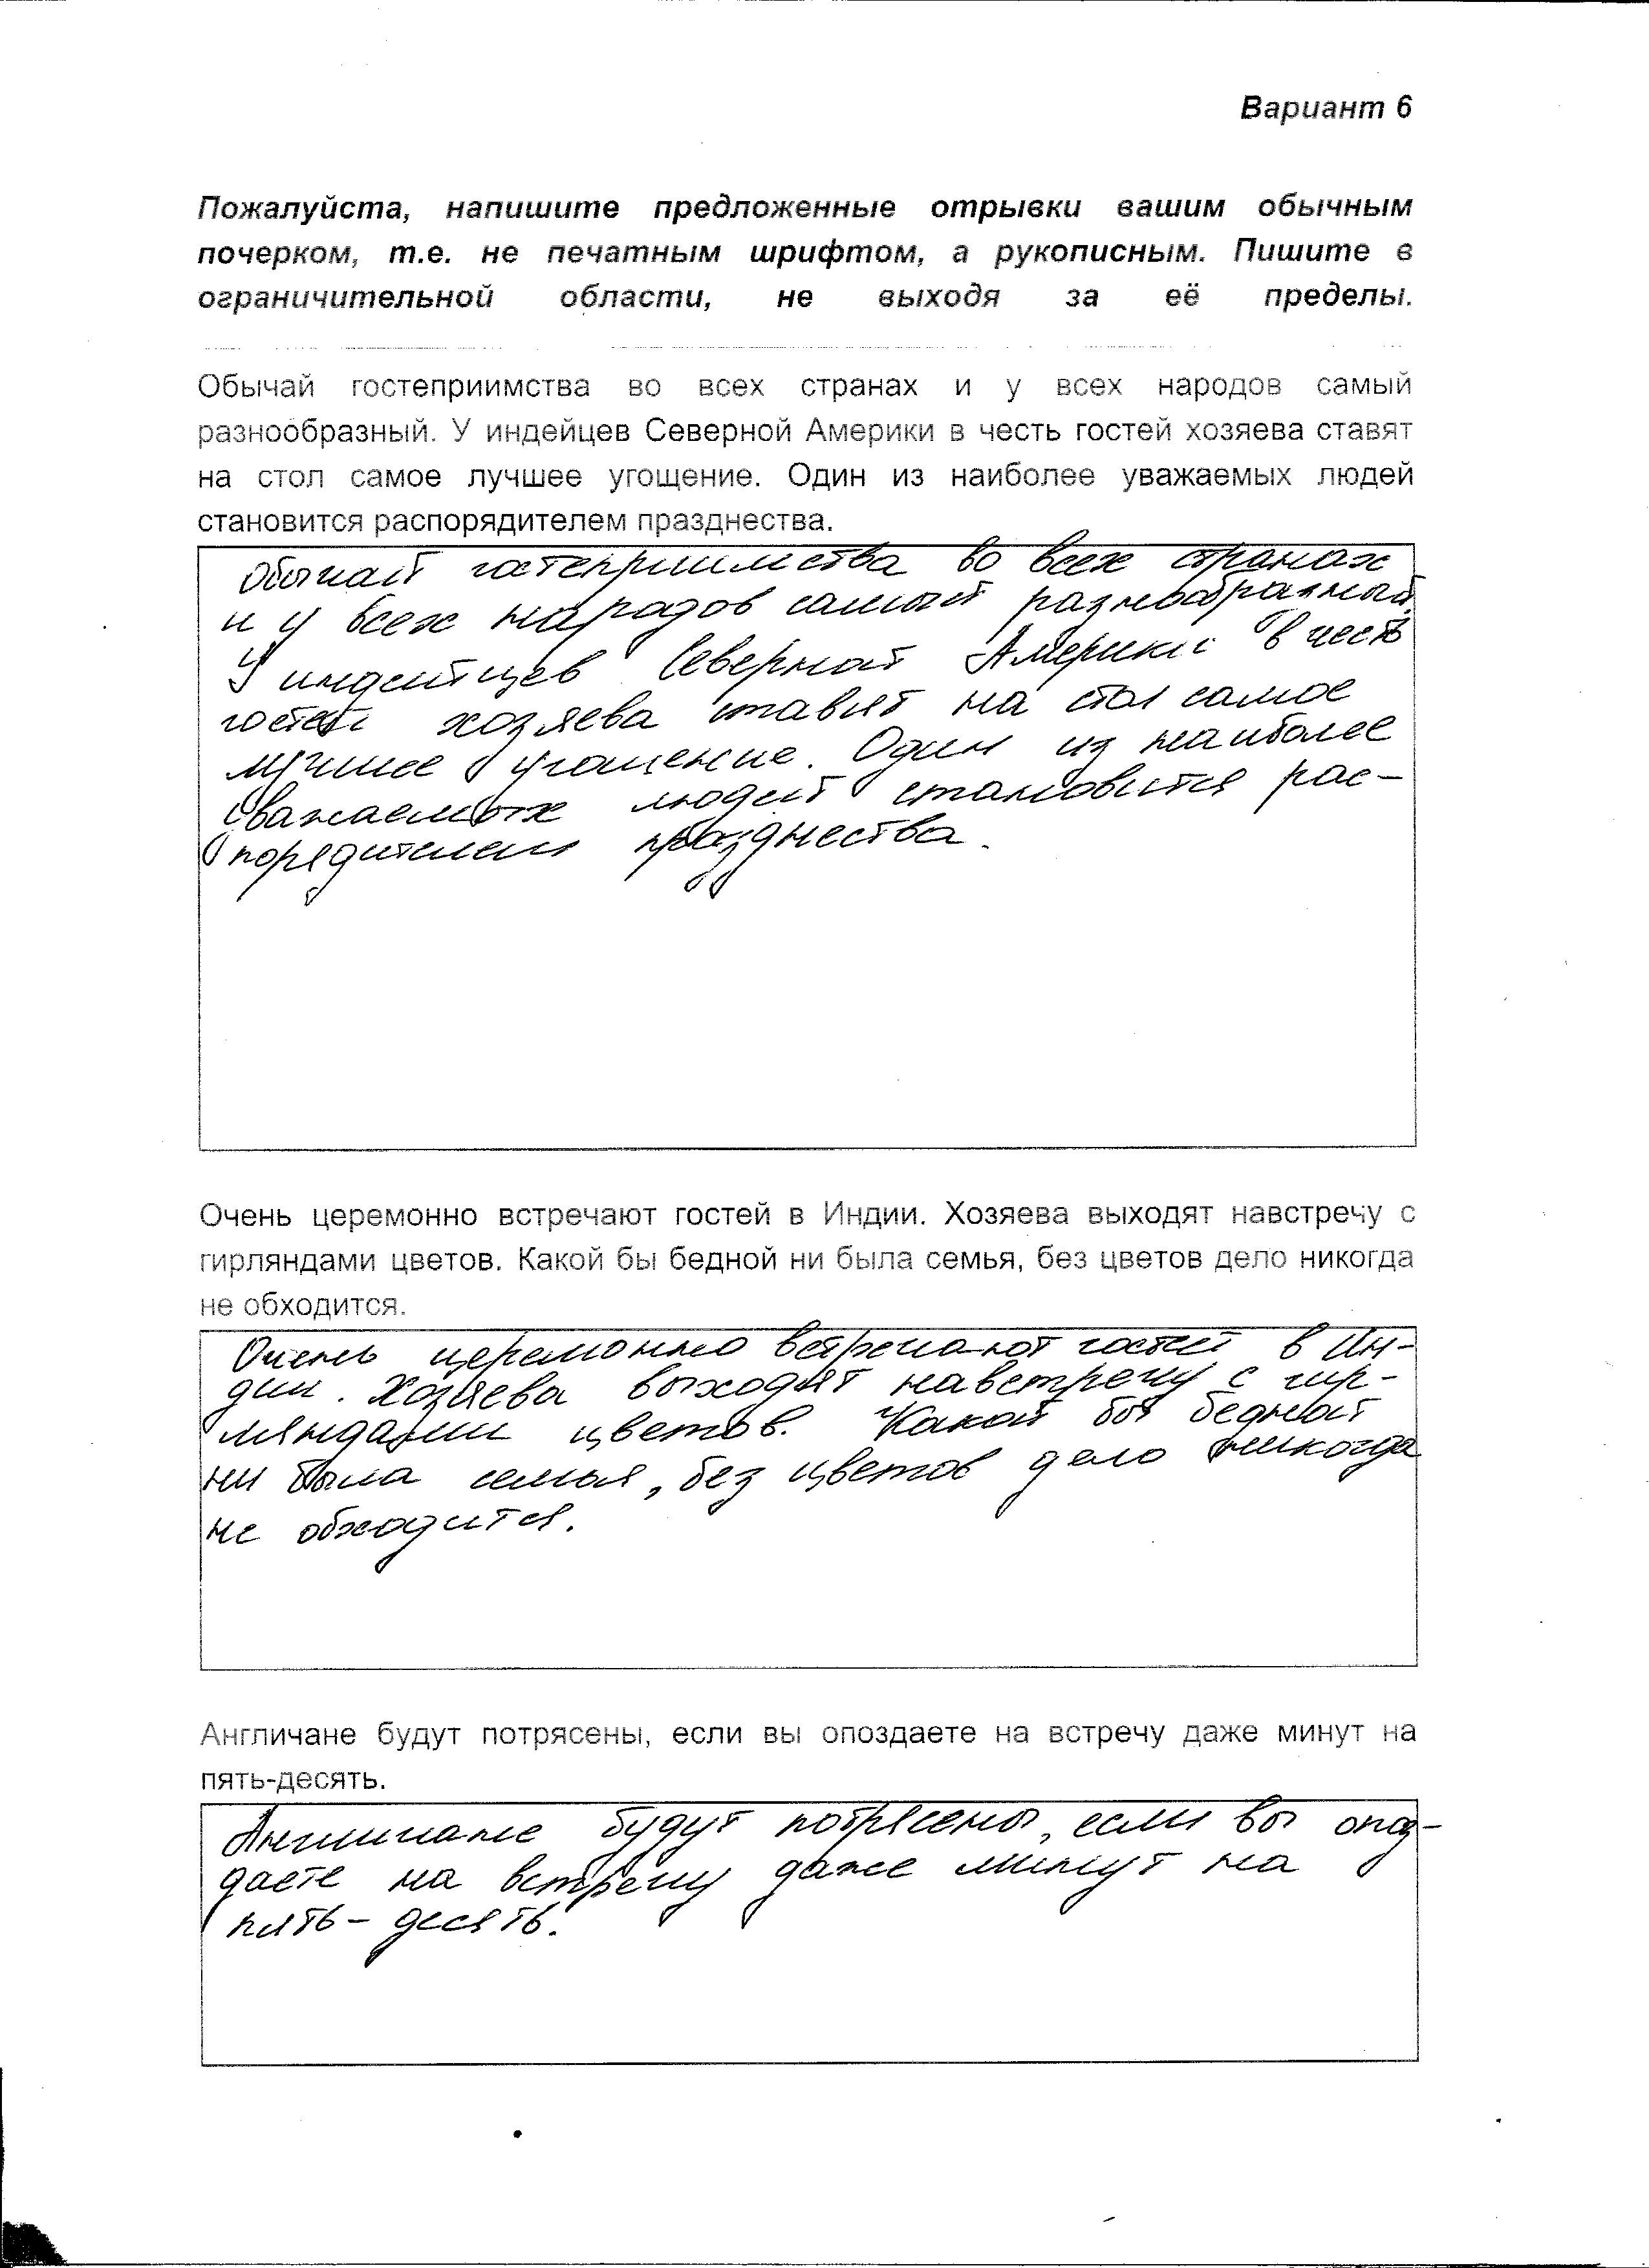 Вариант 6
Пожалуйста, напишите предложенные отрывки вашим обычным
почерком, т.е. не печатным шрифтом, а рукописным. Пишите в
ограничительной области, не выходя за её пределы.
Обычай гостеприимства во всех странах и у всех народов самый
разнообразный. У индейцев Северной Америки в честь гостей хозяева ставят
на стол самое лучшее угощение. Один из наиболее уважаемых людей
становится распорядителем празднества.
Обычай гостеприимства во всех странах
и у всех народов самый разнообразный.
У индейцев Северной Америки в честь
гостей хозяева ставят на стол самое
лучшее угощение. Один из наиболее
уважаемых людей становится рас-
порядителем празднества.
Очень церемонно встречают гостей в Индии. Хозяева выходят навстречу с
гирляндами цветов. Какой бы бедной ни была семья, без цветов дело никогда
не обходится.
Очень церемонно встречают гостей в Ин-
дии. Хозяева выходят навстречу с гир-
ляндами цветов. Какой бы бедной
ни была семья, без цветов дело никогда
не обходится.
Англичане будут потрясены, если вы опоздаете на встречу даже минут на
пять-десять.
Англичане будут потрясены, если вы опоз-
даете на встречу даже минут на
пять-десять.